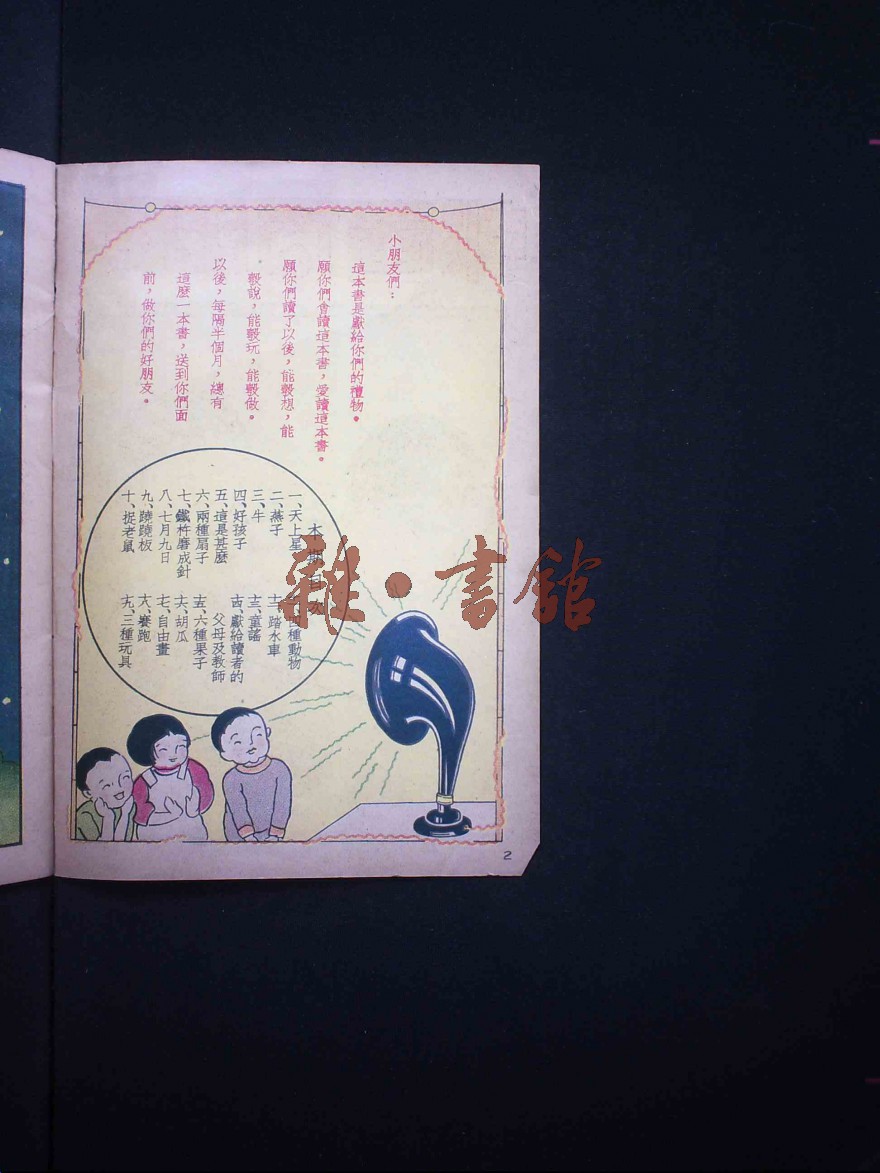 小朋友們：
這本書是獻給你們的禮物。
願你們會讀這本書，愛讀這本書。
願你們讀了以後，能彀想，能
彀說，能彀玩，能彀做。
以後，每隔半個月，總有
這麼一本書，送到你們面
前，做你們的好朋友。
本期目次
一、天上星
二、燕子
三、牛
四、好孩子
五、這是甚麼
六、兩種扇子
七、鐵杵磨成針
八、七月九日
九、蹺蹺板
十、捉老鼠
四種動物
踏水車
童謠
獻給讀者的
父母及教師
六種果子
胡瓜
自由畫
賽跑
三種玩具
雜·書館
2